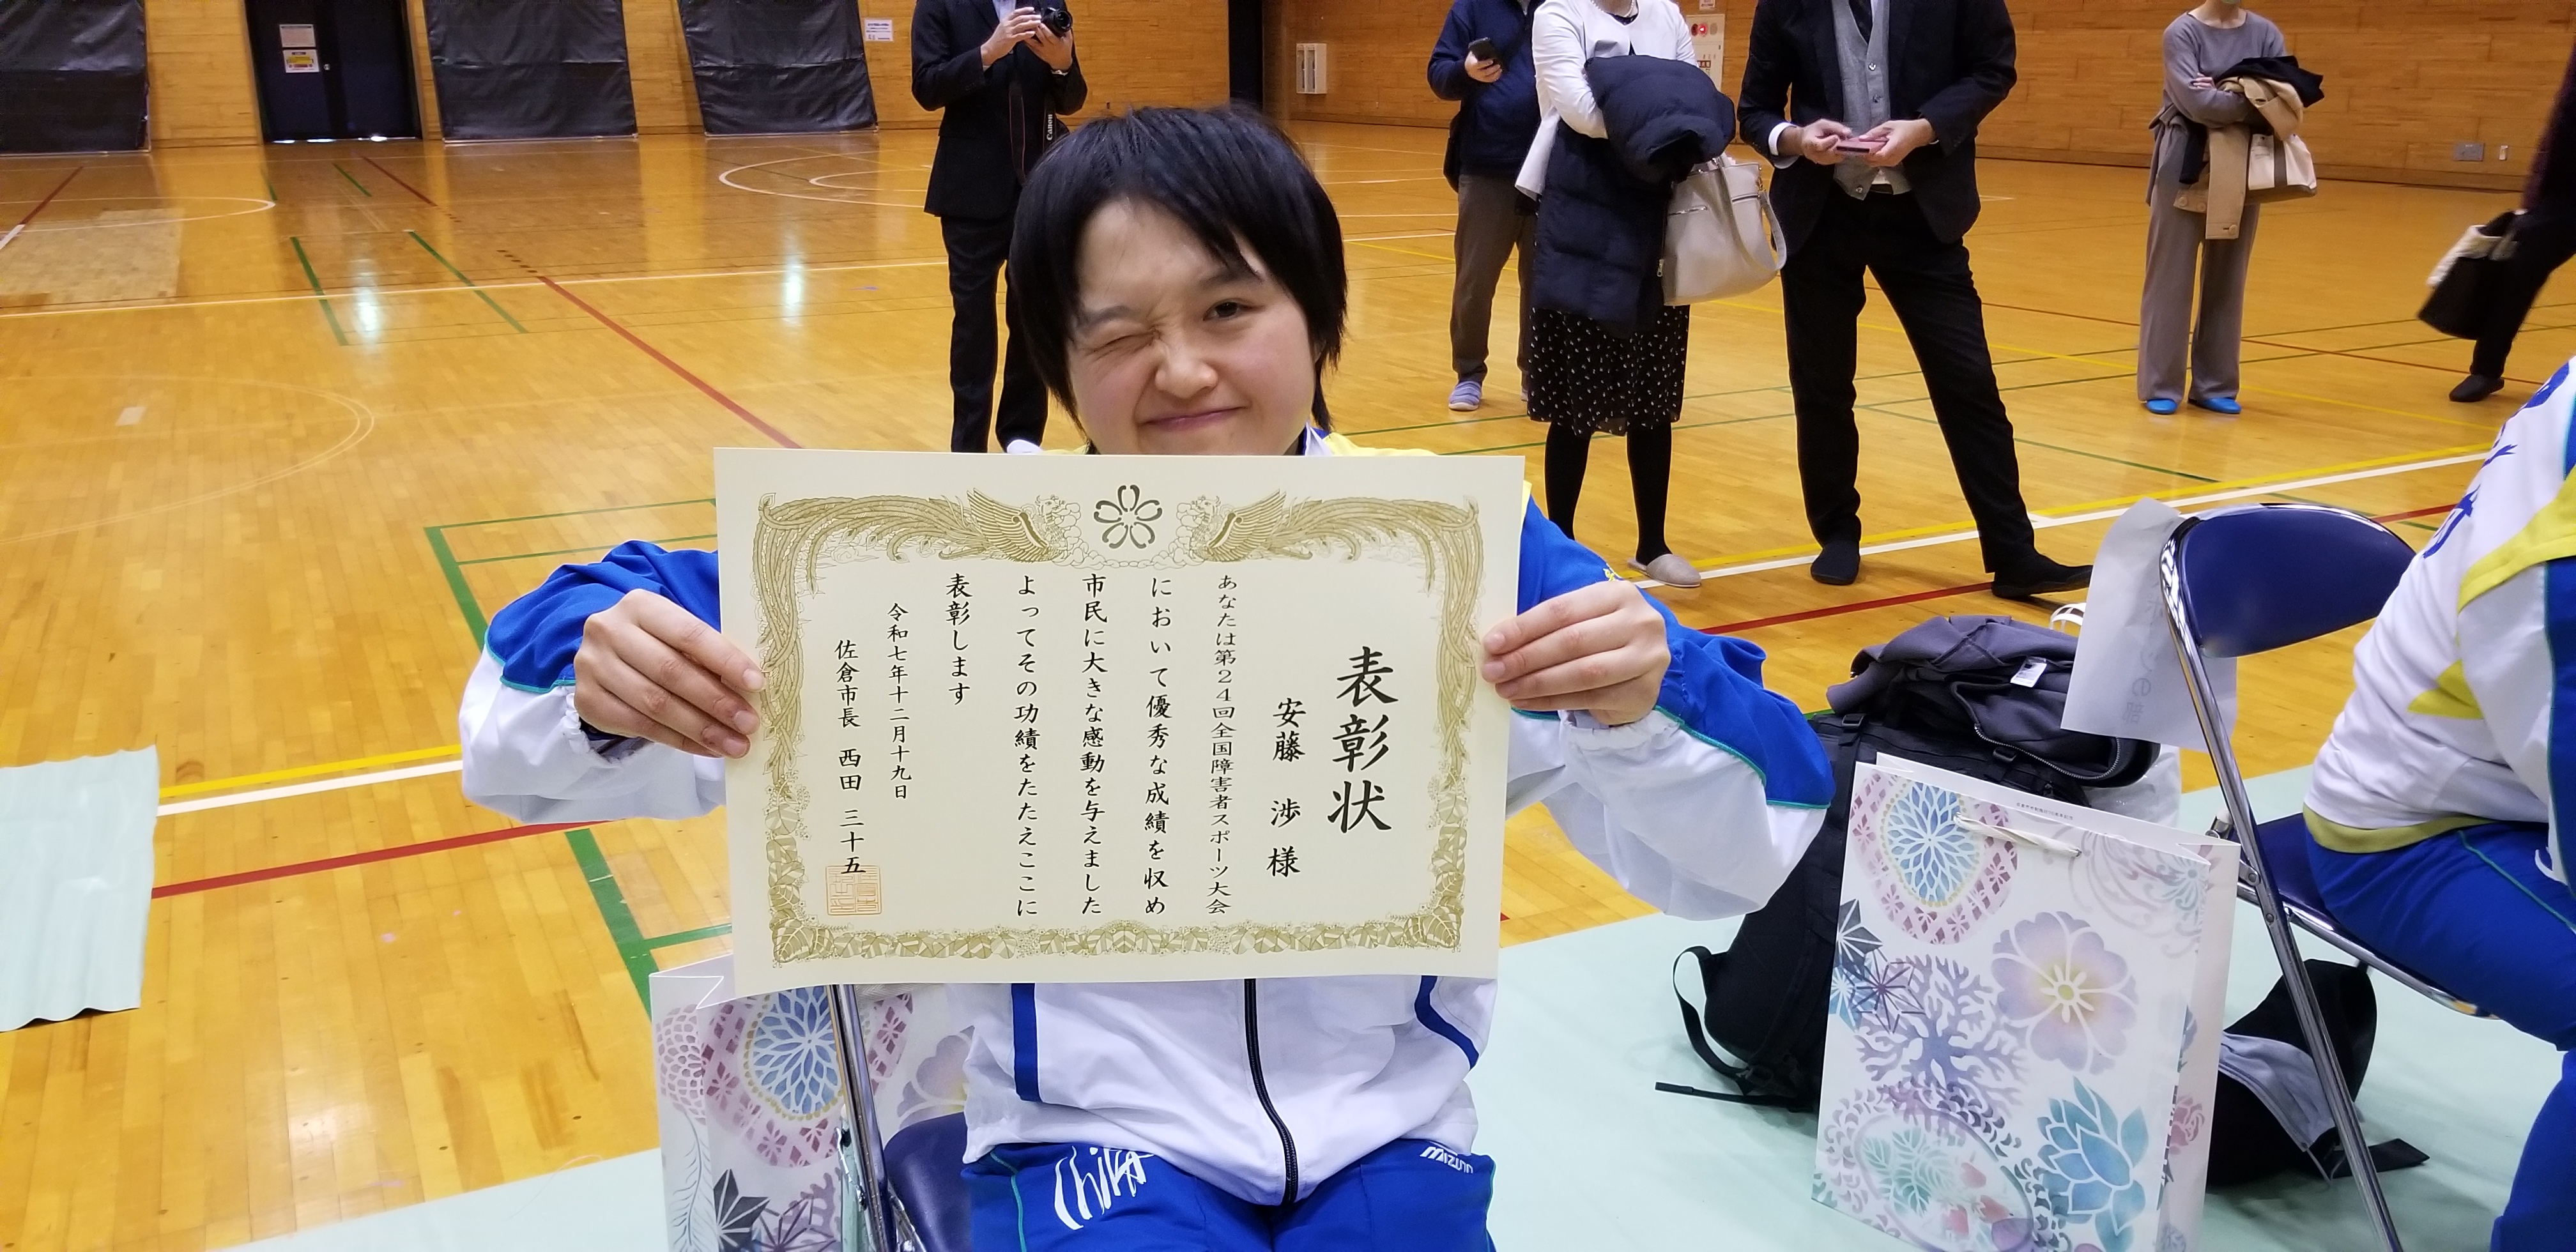 表彰状
安藤 渉 様
あなたは第24回全国障害者スポーツ大会
において優秀な成績を収め
市民に大きな感動を与えました
よってその功績をたたえここに
表彰します
令和七年十二月十九日
佐倉市長 西田 三十五
Canon
Chiba
mizuno